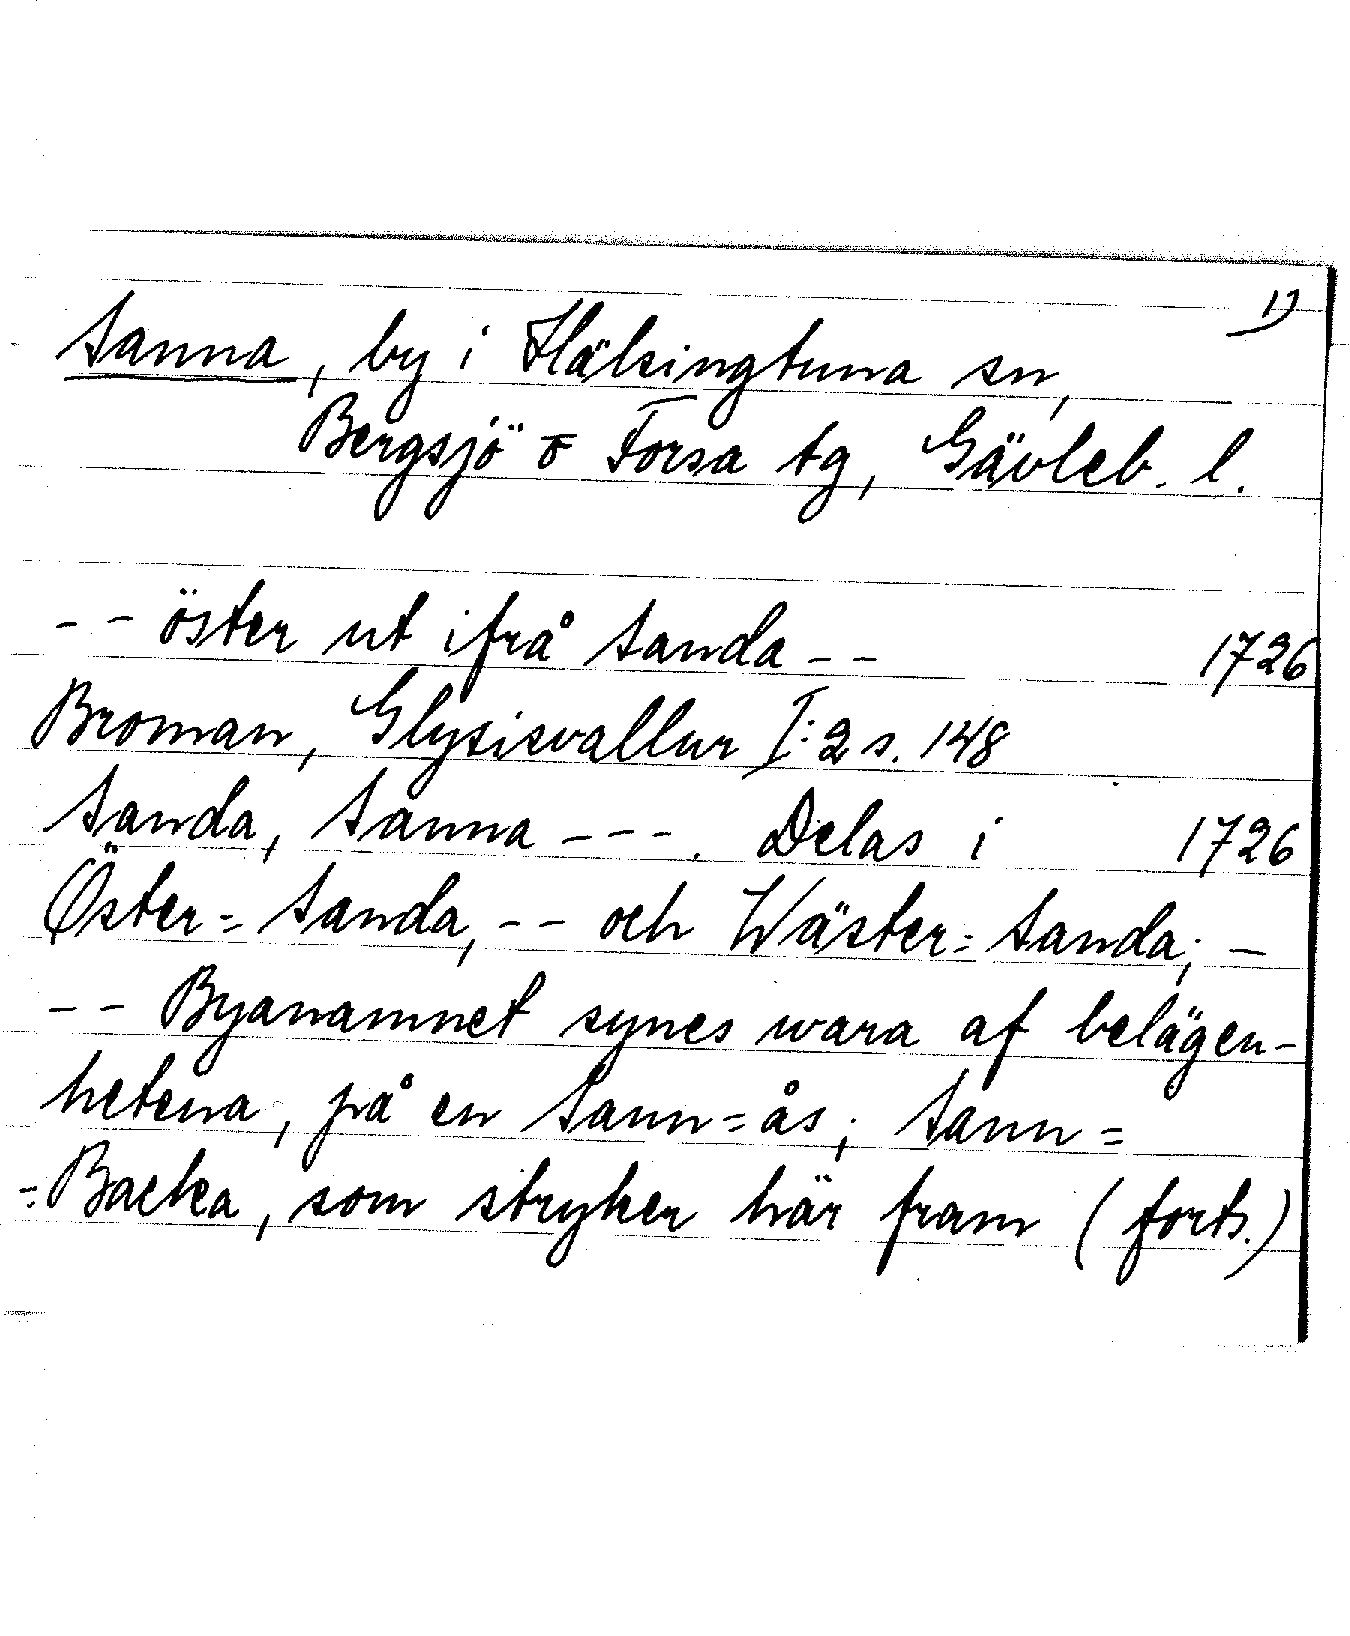 1)
Sanna, by i Hälsingtuna sn,
Bergsjö o Forsa tg, Gävleb. l.
-- öster ut ifrå Sanda -- 1726
Broman, Glysisvallur I:2 s. 148
Sanda, Sanna ---. Delas i 1726
Öster= Sanda, -- och Wäster= Sanda; -
-- Byanamnet synes wara af belägen-
hetena, på en Sann=ås; Sann=
=Backa, som stryker här fram (forts.)